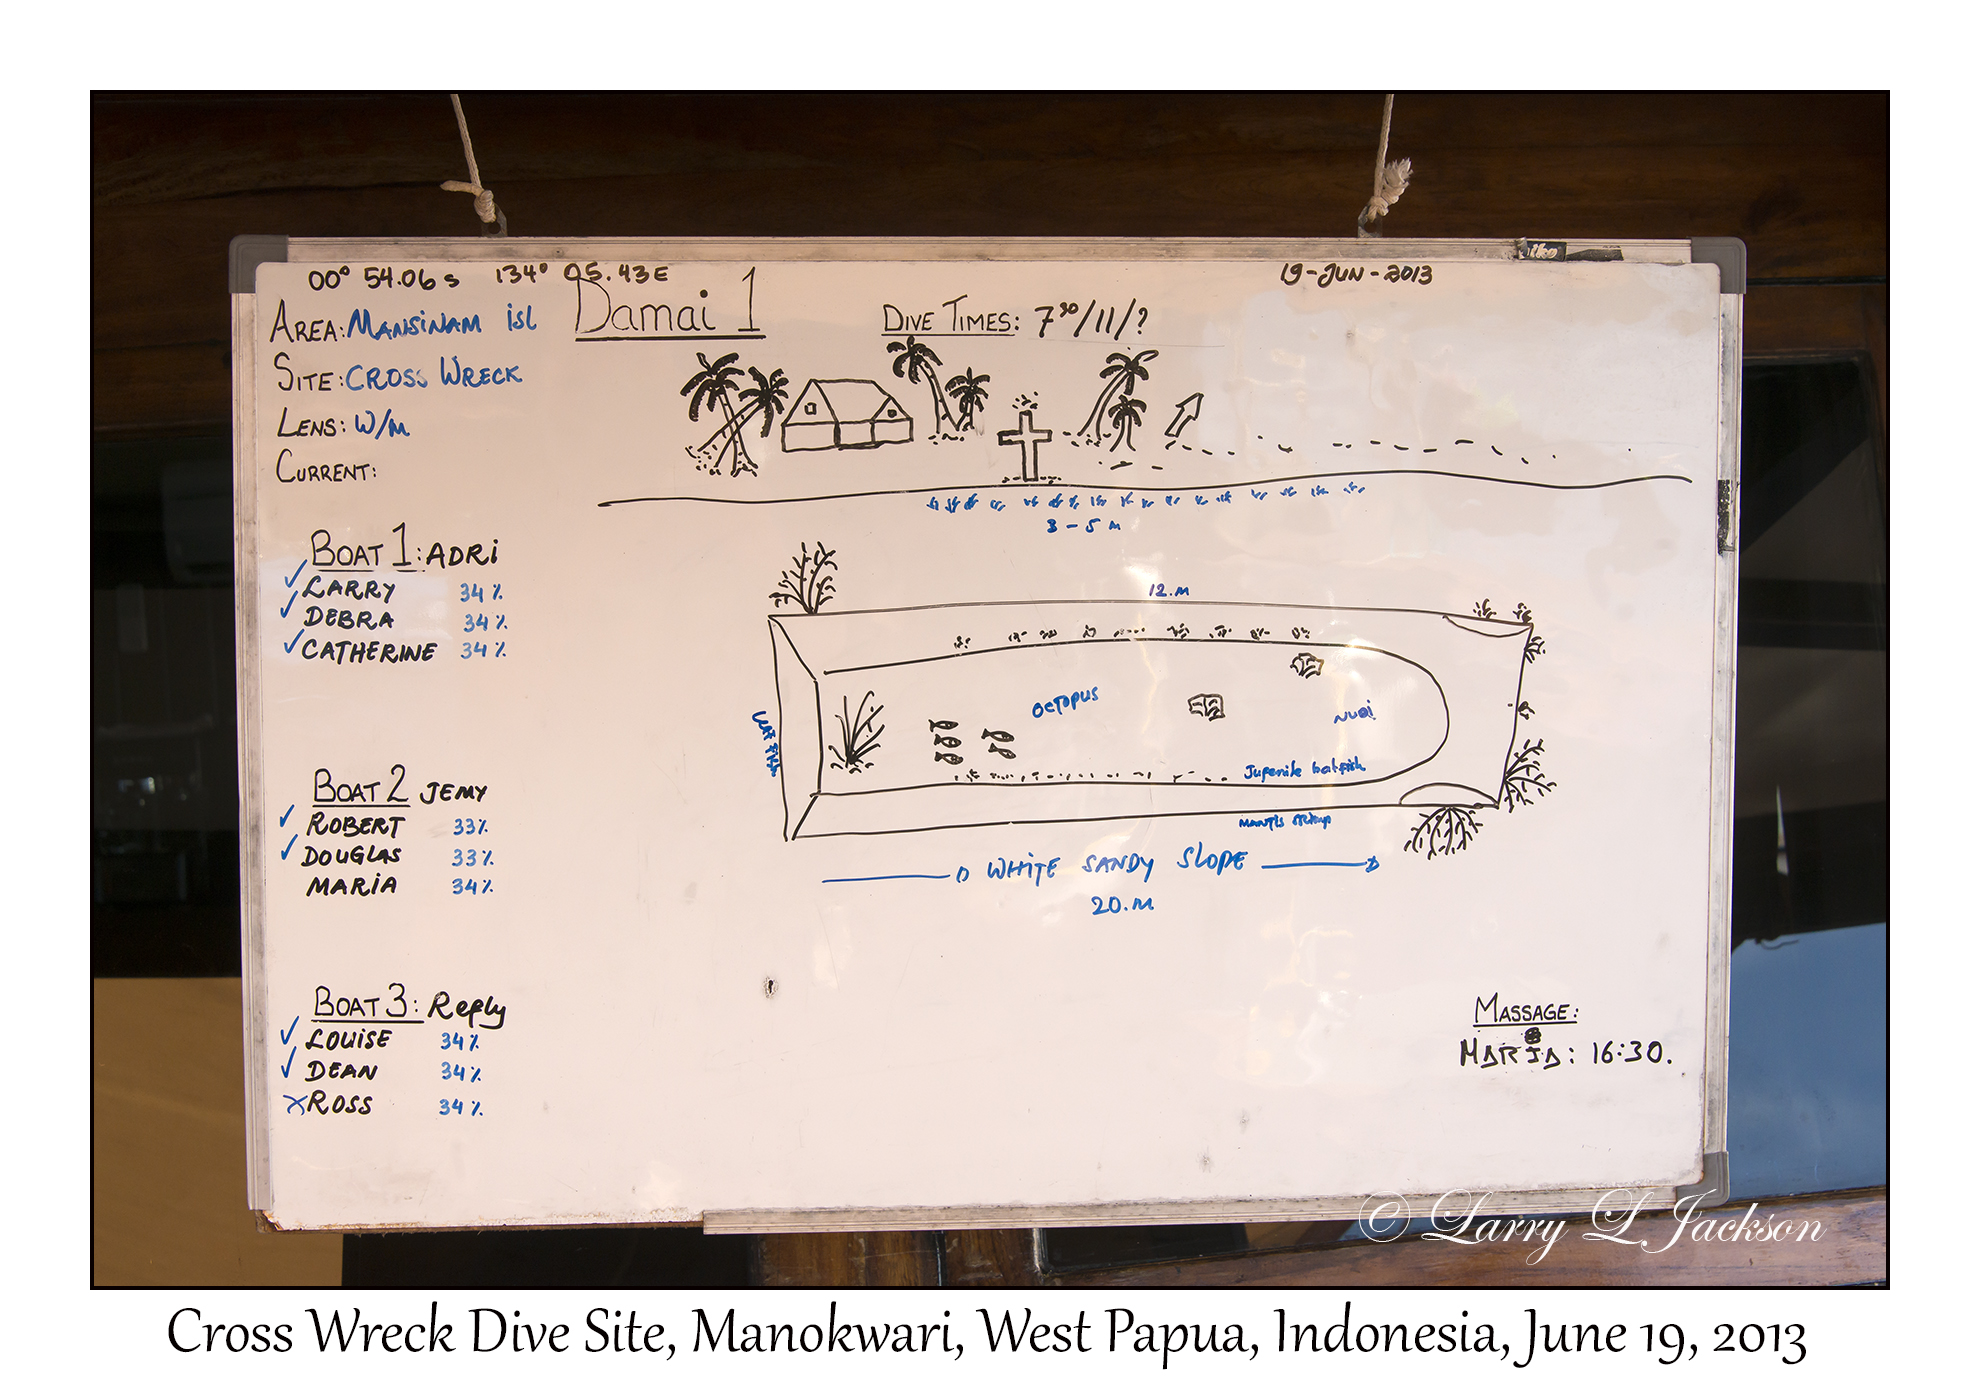 00° 54.06 S 134° 05.43 E
19-JUN-2013
AREA: MANSINAM ISL
Damai 1
DIVE TIMES: 7³⁰/11/?
SITE: CROSS WRECK
LENS: W/M
CURRENT:
3 - 5 M
BOAT 1: ADRI
✓ LARRY 34%
✓ DEBRA 34%
✓ CATHERINE 34%
12.M
OCTOPUS
NUDI
Juvenile batfish
MANTIS
WHITE SANDY SLOPE
20.M
BOAT 2 JEMY
✓ ROBERT 33%
✓ DOUGLAS 33%
MARIA 34%
BOAT 3: Refly
✓ LOUISE 34%
✓ DEAN 34%
X ROSS 34%
MASSAGE:
MARIA: 16:30.
© Larry L Jackson
Cross Wreck Dive Site, Manokwari, West Papua, Indonesia, June 19, 2013